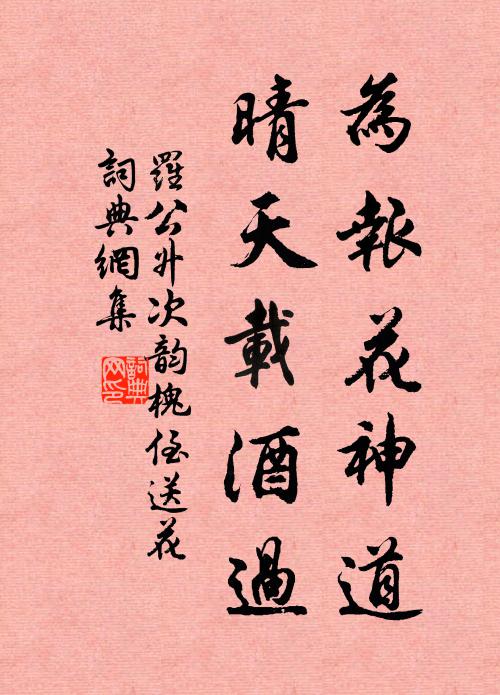 為報花神道
晴天載酒過
羅公升次韵槐侄送花
詞典網集
詞典
网印